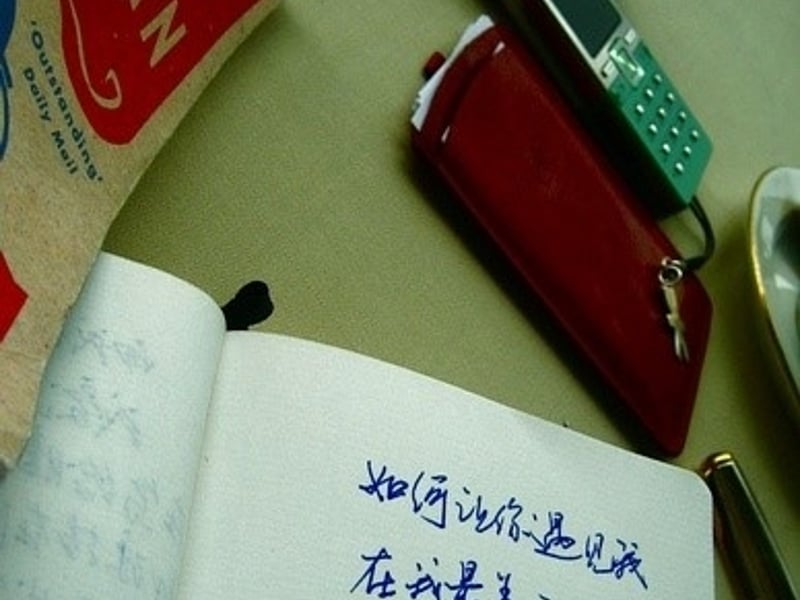 N
'Outstanding'
Daily Mail
如何让你遇见我
在我最美